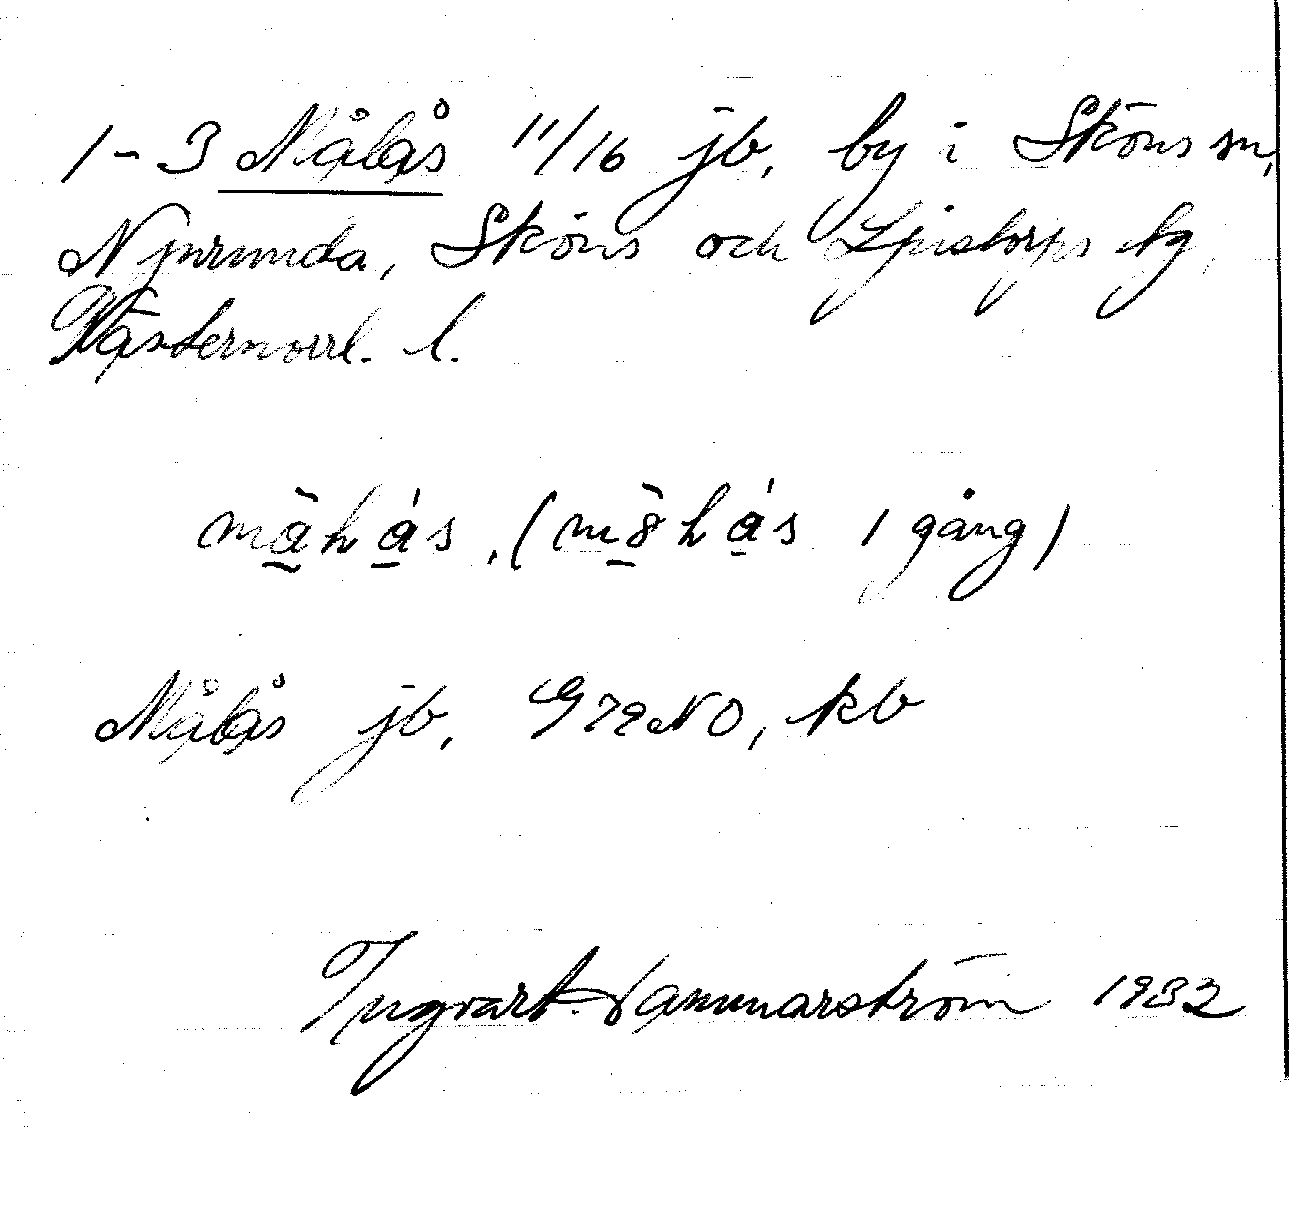 1-3 Målås 11/16 jb, by i Sköns sn,
Njurunda, Sköns och Ljustorps tg,
Västernorrl. l.
må̀hás, ( hás 1 gång)
Målås jb, kb
Ingvart 1932